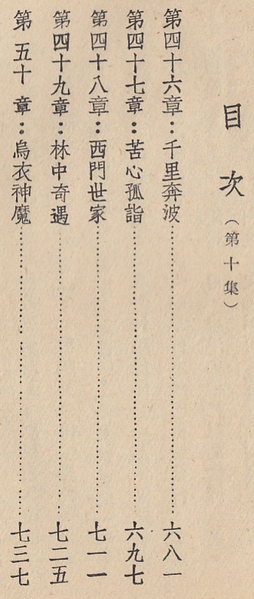 目次（第十集）
第四十六章：千里奔波………………六八一
第四十七章：苦心孤詣………………六九七
第四十八章：西門世家………………七一一
第四十九章：林中奇遇………………七二五
第五十章：烏衣神魔………………七三七